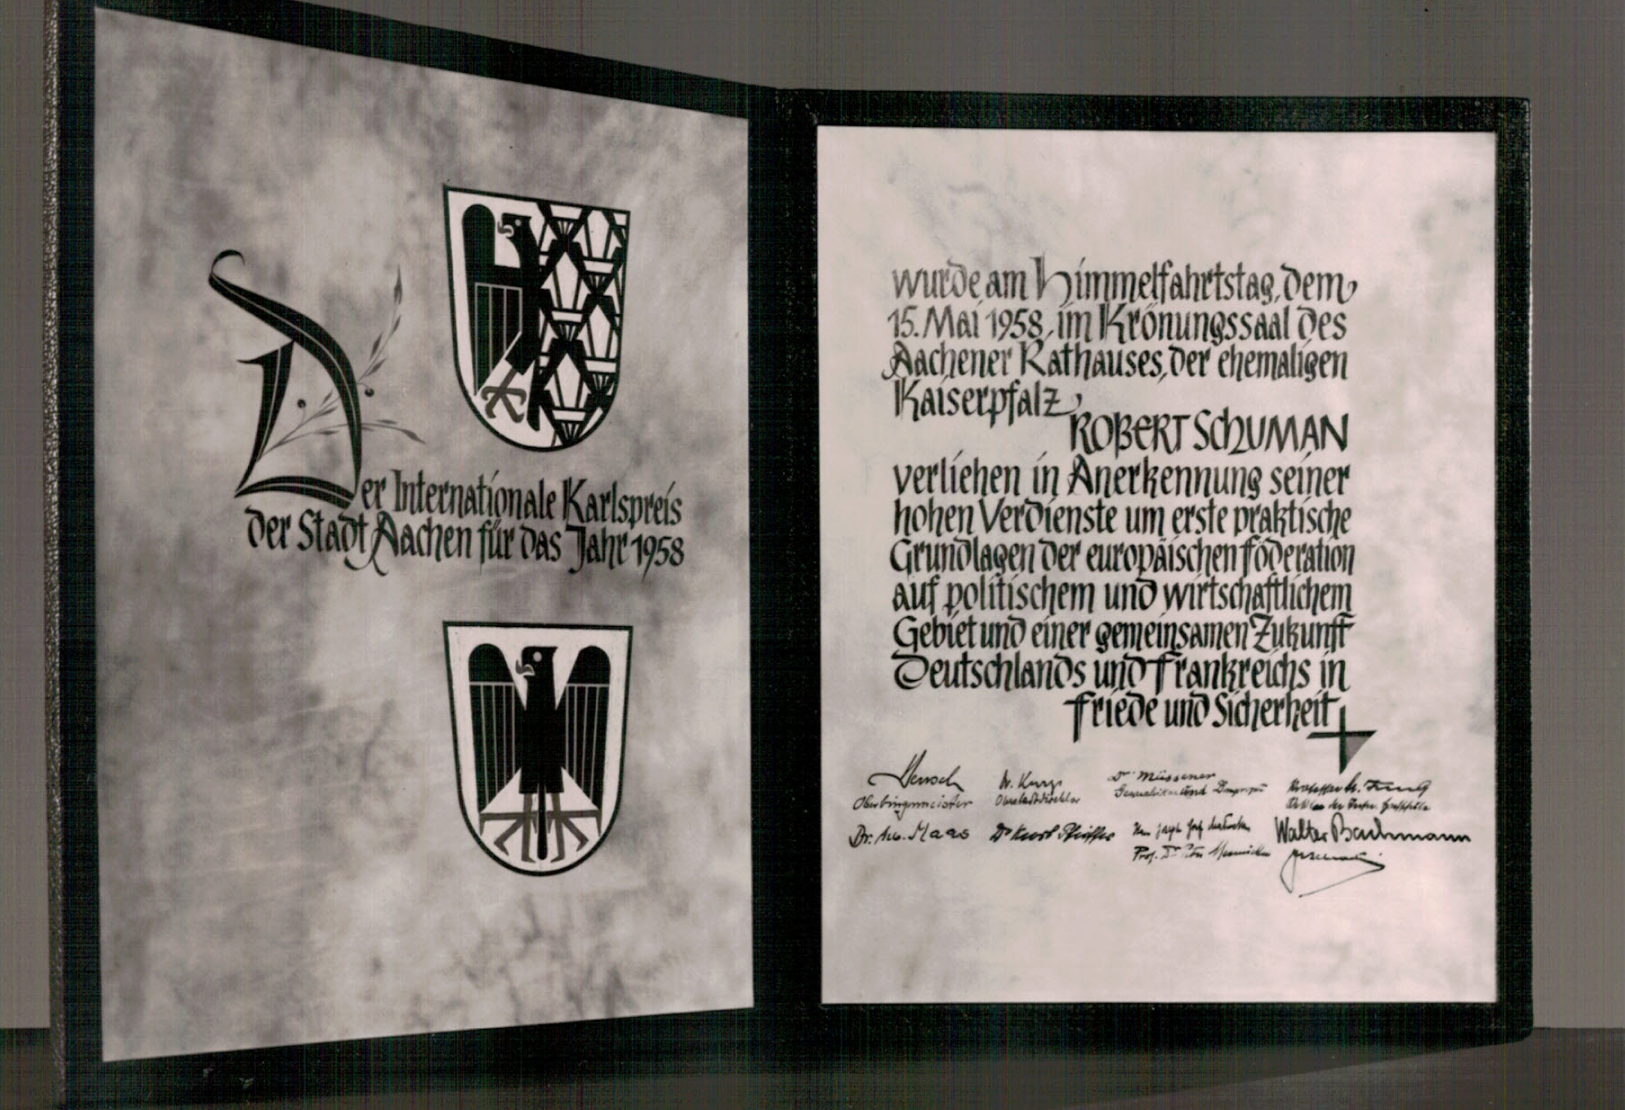 Der Internationale Karlspreis
der Stadt Aachen für das Jahr 1958
wurde am Himmelfahrtstag, dem
15. Mai 1958, im Krönungssaal des
Aachener Rathauses, der ehemaligen
Kaiserpfalz,
ROBERT SCHUMAN
verliehen in Anerkennung seiner
hohen Verdienste um erste praktische
Grundlagen der europäischen Föderation
auf politischem und wirtschaftlichem
Gebiet und einer gemeinsamen Zukunft
Deutschlands und Frankreichs in
Friede und Sicherheit
Oberbürgermeister
Oberstadtdirektor
Dr. Müssener
Dr. Kurt Pfeiffer
Walter Bachmann
Prof. Dr.